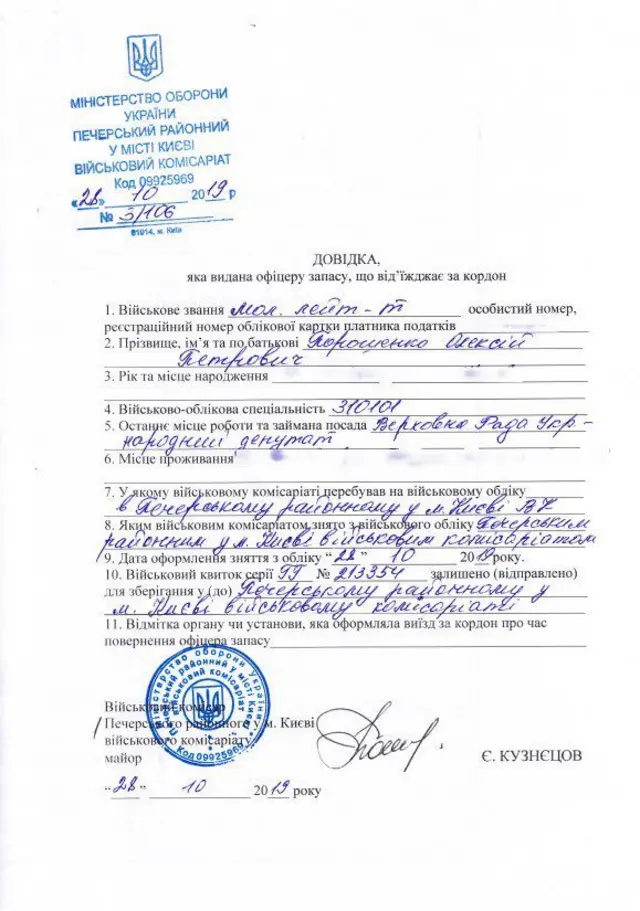 МІНІСТЕРСТВО ОБОРОНИ
УКРАЇНИ
ПЕЧЕРСЬКИЙ РАЙОННИЙ
У МІСТІ КИЄВІ
ВІЙСЬКОВИЙ КОМІСАРІАТ
Код 09925969
"28" 10 2019 р
№ 3/106
01014, м. Київ
ДОВІДКА,
яка видана офіцеру запасу, що від'їжджає за кордон
1. Військове звання мол. лейт-т особистий номер,
реєстраційний номер облікової картки платника податків
2. Прізвище, ім'я та по батькові Порошенко Олексій
Петрович
3. Рік та місце народження
4. Військово-облікова спеціальність 310101
5. Останнє місце роботи та займана посада Верховна Рада Укр-
народний депутат
6. Місце проживання
7. У якому військовому комісаріаті перебував на військовому обліку
в Печерському районному у м. Києві ВК
8. Яким військовим комісаріатом знято з військового обліку Печерським
районним у м. Києві військовим комісаріатом
9. Дата оформлення зняття з обліку "28" 10 2019 року.
10. Військовий квиток серії ГГ № 213354 залишено (відправлено)
для зберігання у (до) Печерському районному у
м. Києві військовому комісаріаті
11. Відмітка органу чи установи, яка оформляла виїзд за кордон про час
повернення офіцера запасу
Військовий комісар
Печерського районного у м. Києві
військового комісаріату
майор
Є. КУЗНЄЦОВ
"28" 10 2019 року
Міністерство оборони України
Печерський районний у місті Києві
військовий комісаріат
Код 09925969